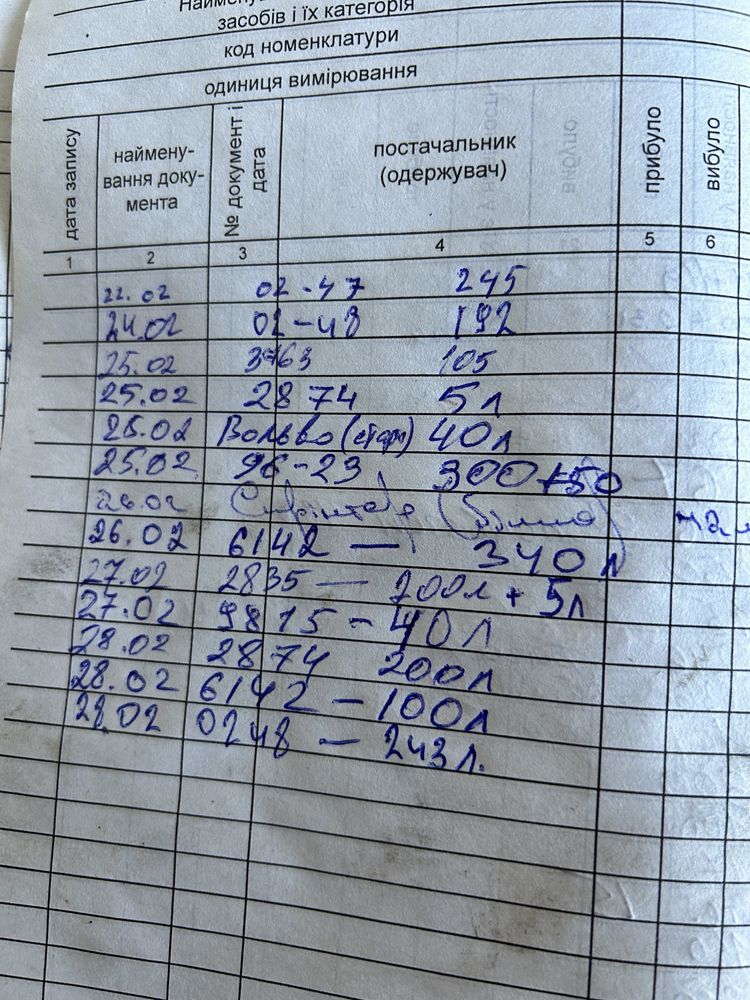 Наймену
засобів і їх категорія
код номенклатури
одиниця вимірювання
дата запису
наймену-
вання доку-
мента
№ документ і
дата
постачальник
(одержувач)
прибуло
вибуло
1 2 3 4 5 6
22.02 02-47 245
24.02 02-48 192
25.02 3763 105
25.02 2874 5л
25.02 Вольво (стар) 40л
25.02 96-23 300+50
26.02
26.02 6142 — 340л
27.02 2835 — 200л + 5л
27.02 9815 - 40л
28.02 2874 200л
28.02 6142 — 100л
28.02 0248 — 243л.